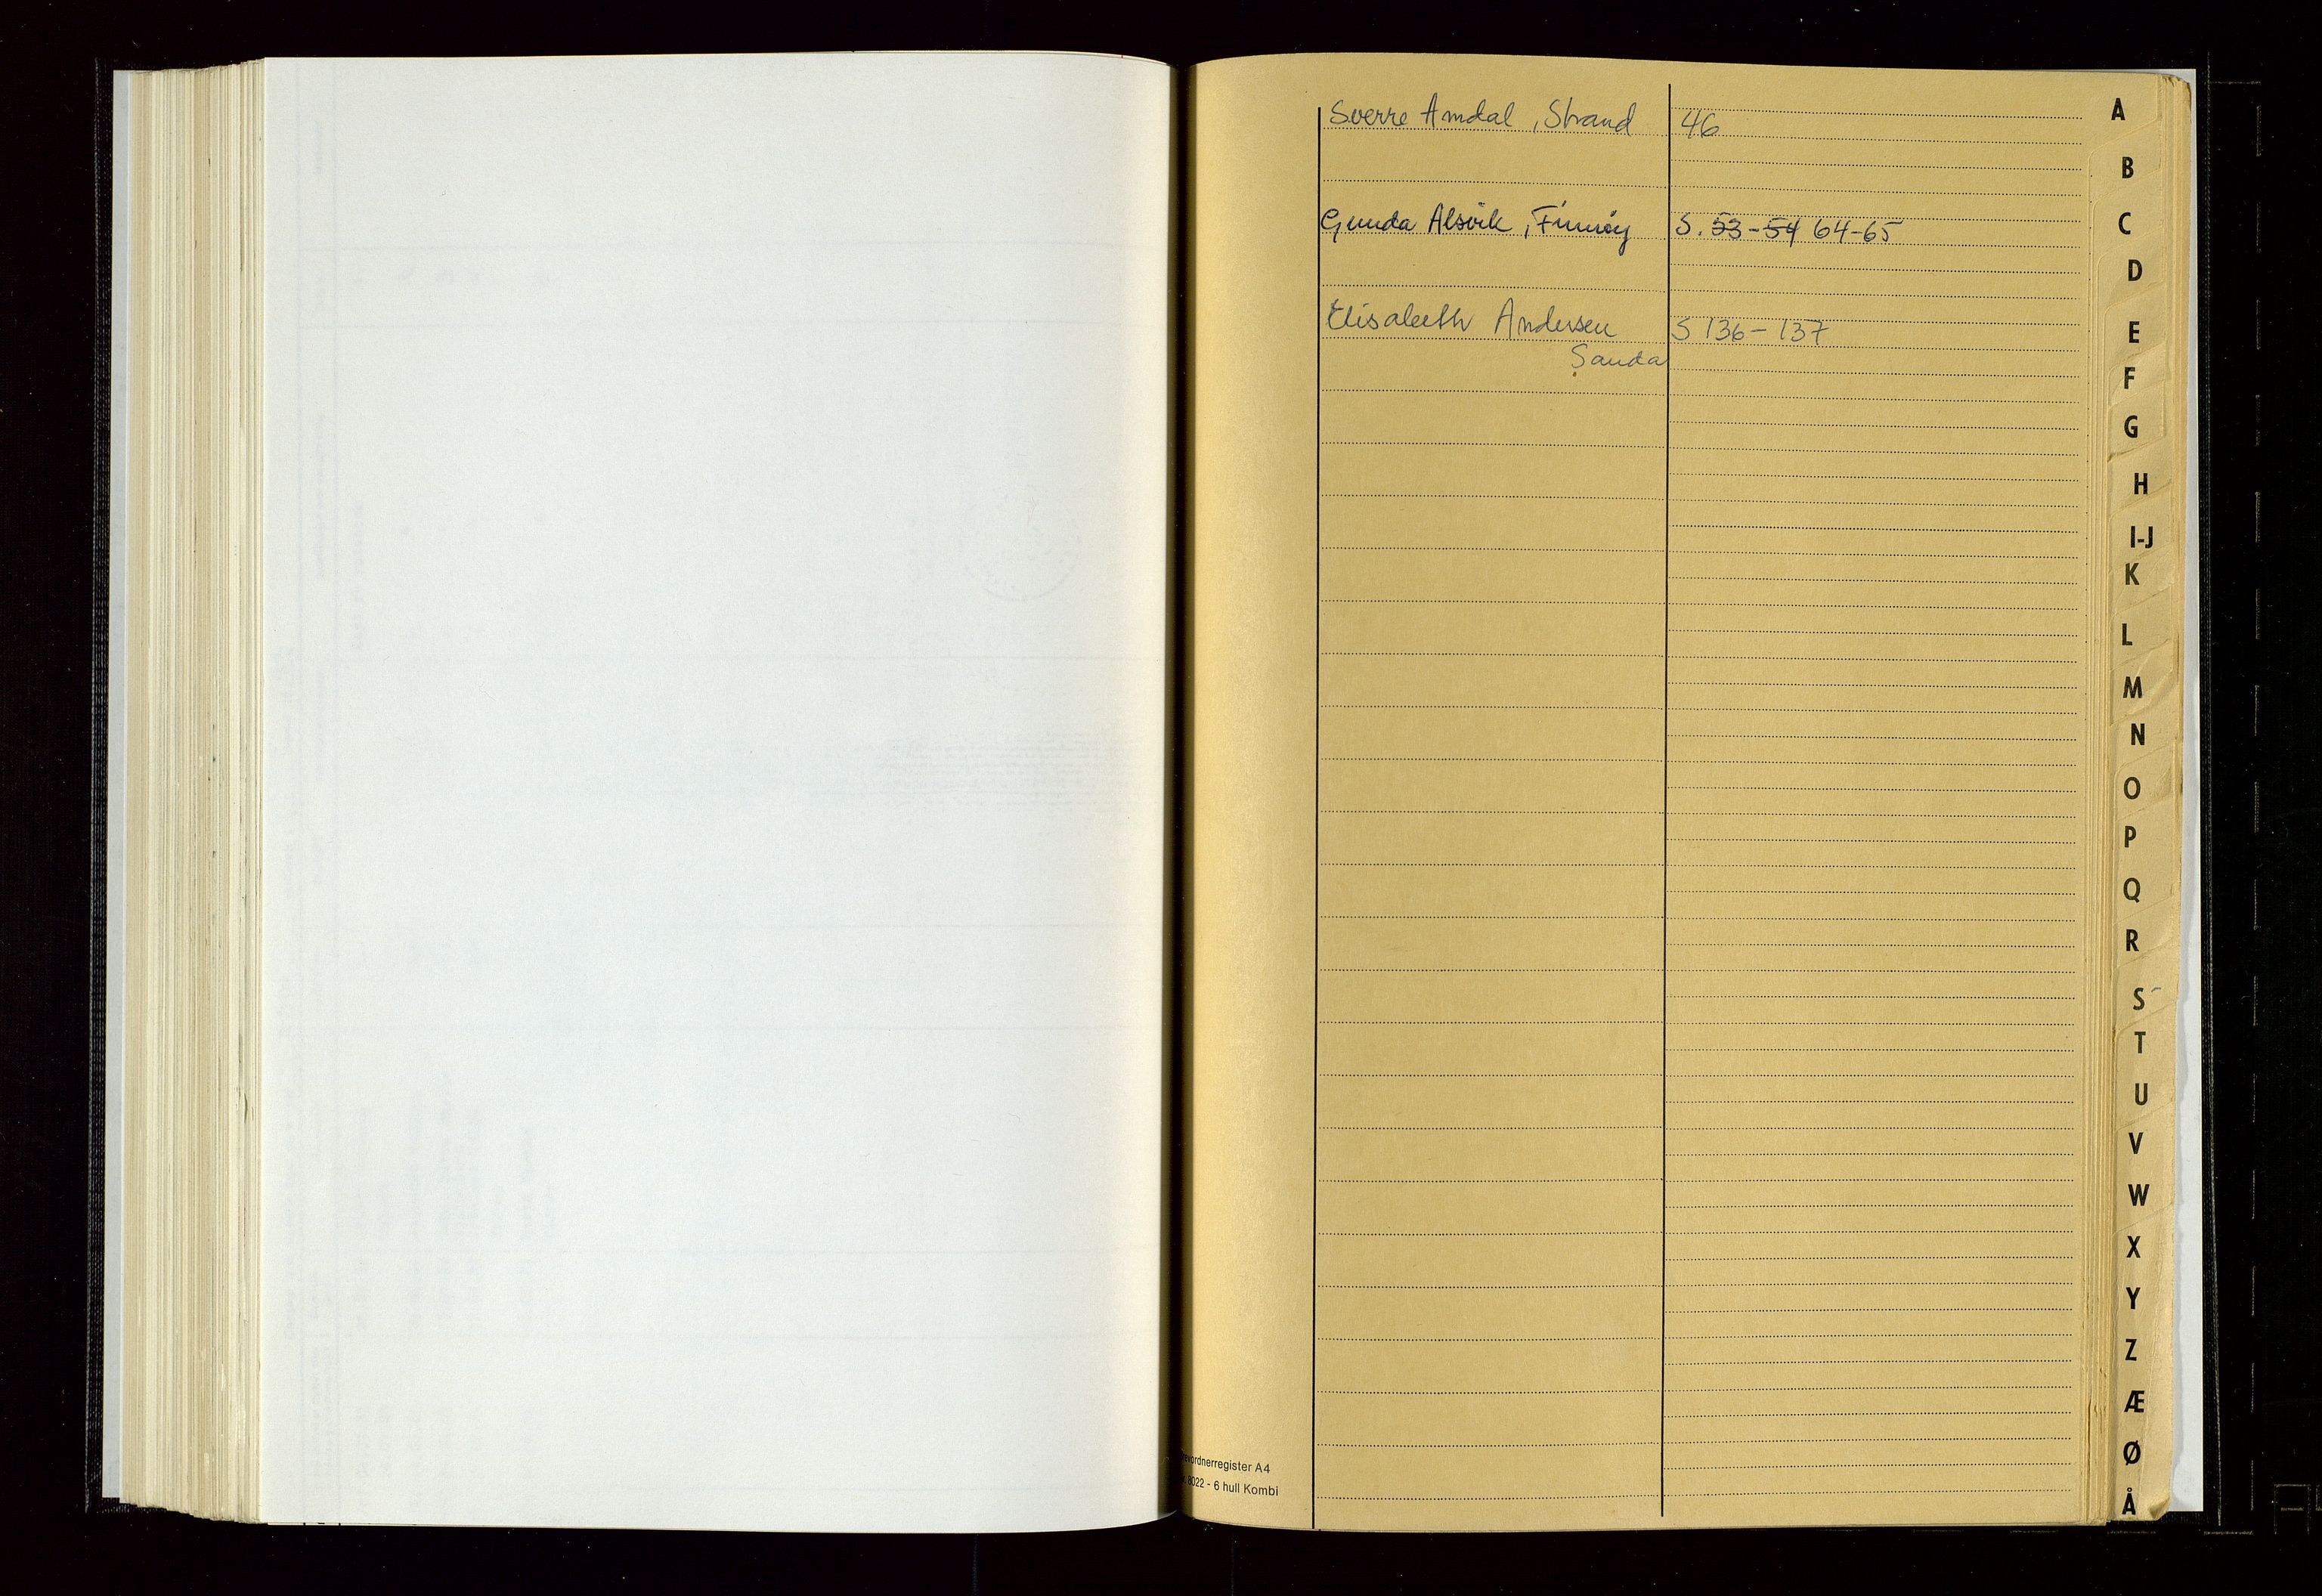 Sverre Amdal, Strand 46
Gunda Alsvik, Finnøy S. 53-54 64-65
Elisabeth Andersen S 136-137
Sauda
A
B
C
D
E
F
G
H
I-J
K
L
M
N
O
P
Q
R
S
T
U
V
W
X
Y
Z
Æ
Ø
Å
evordnerregister A4
8022 - 6 hull Kombi